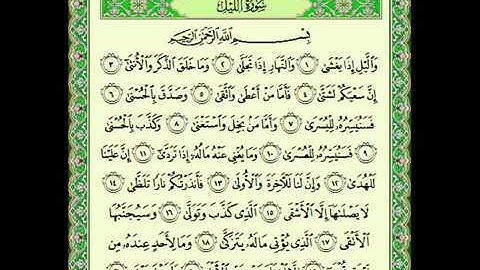 سُورَةُ اللَّيْلِ
بِسْمِ اللَّهِ الرَّحْمَٰنِ الرَّحِيمِ
وَاللَّيْلِ إِذَا يَغْشَىٰ ١ وَالنَّهَارِ إِذَا تَجَلَّىٰ ٢ وَمَا خَلَقَ الذَّكَرَ وَالْأُنْثَىٰ ٣
إِنَّ سَعْيَكُمْ لَشَتَّىٰ ٤ فَأَمَّا مَنْ أَعْطَىٰ وَاتَّقَىٰ ٥ وَصَدَّقَ بِالْحُسْنَىٰ ٦
فَسَنُيَسِّرُهُ لِلْيُسْرَىٰ ٧ وَأَمَّا مَنْ بَخِلَ وَاسْتَغْنَىٰ ٨ وَكَذَّبَ بِالْحُسْنَىٰ
٩ فَسَنُيَسِّرُهُ لِلْعُسْرَىٰ ١٠ وَمَا يُغْنِي عَنْهُ مَالُهُ إِذَا تَرَدَّىٰ ١١ إِنَّ عَلَيْنَا
لَلْهُدَىٰ ١٢ وَإِنَّ لَنَا لَلْآخِرَةَ وَالْأُولَىٰ ١٣ فَأَنْذَرْتُكُمْ نَارًا تَلَظَّىٰ ١٤
لَا يَصْلَاهَا إِلَّا الْأَشْقَى ١٥ الَّذِي كَذَّبَ وَتَوَلَّىٰ ١٦ وَسَيُجَنَّبُهَا
الْأَتْقَى ١٧ الَّذِي يُؤْتِي مَالَهُ يَتَزَكَّىٰ ١٨ وَمَا لِأَحَدٍ عِنْدَهُ مِنْ